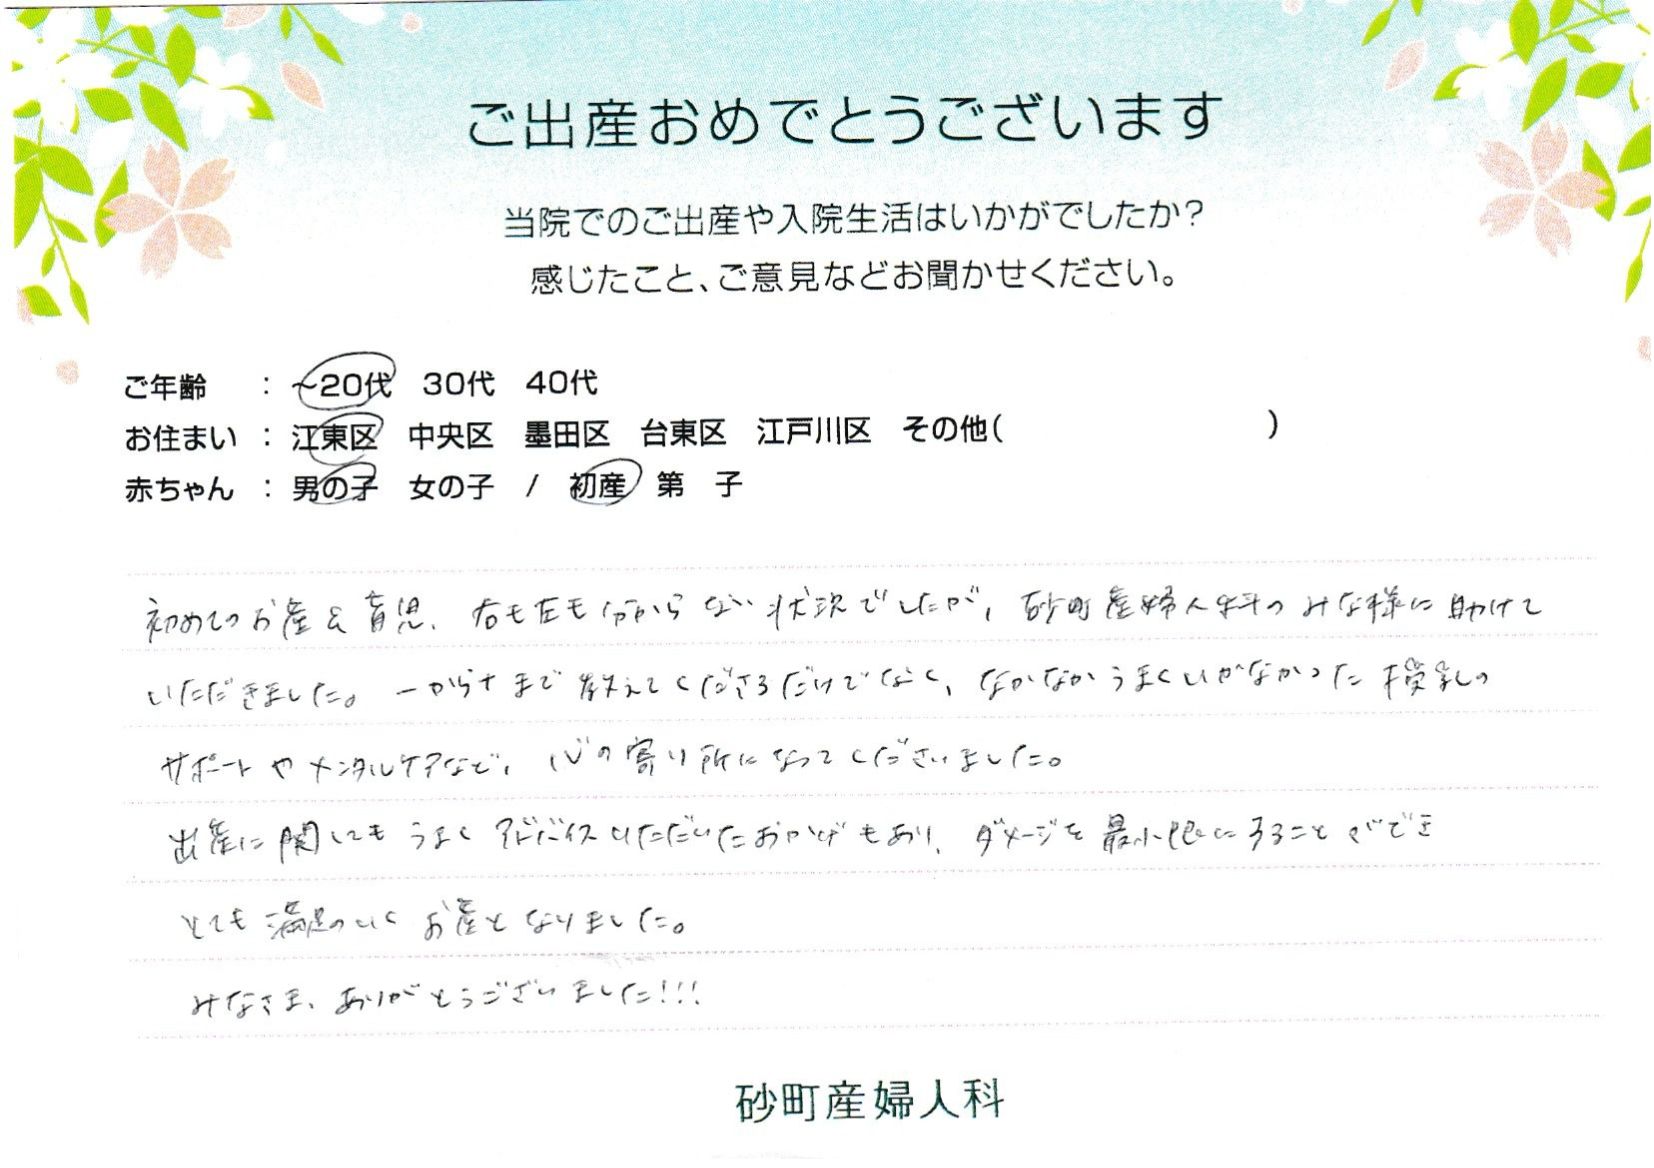 ご出産おめでとうございます
当院でのご出産や入院生活はいかがでしたか?
感じたこと、ご意見などお聞かせください。
ご年齢 : ~20代 30代 40代
お住まい : 江東区 中央区 墨田区 台東区 江戸川区 その他( )
赤ちゃん : 男の子 女の子 / 初産 第 子
初めてのお産&育児、右も左も分からない状況でしたが、砂町産婦人科のみな様に助けて
いただきました。一から十まで教えてくださるだけでなく、なかなかうまくいかなかった授乳の
サポートやメンタルケアなど、心の寄り所になってくださいました。
出産に関してもうまくアドバイスいただいたおかげもあり、ダメージを最小限にすることができ
とても満足のいくお産となりました。
みなさま、ありがとうございました!!!
砂町産婦人科